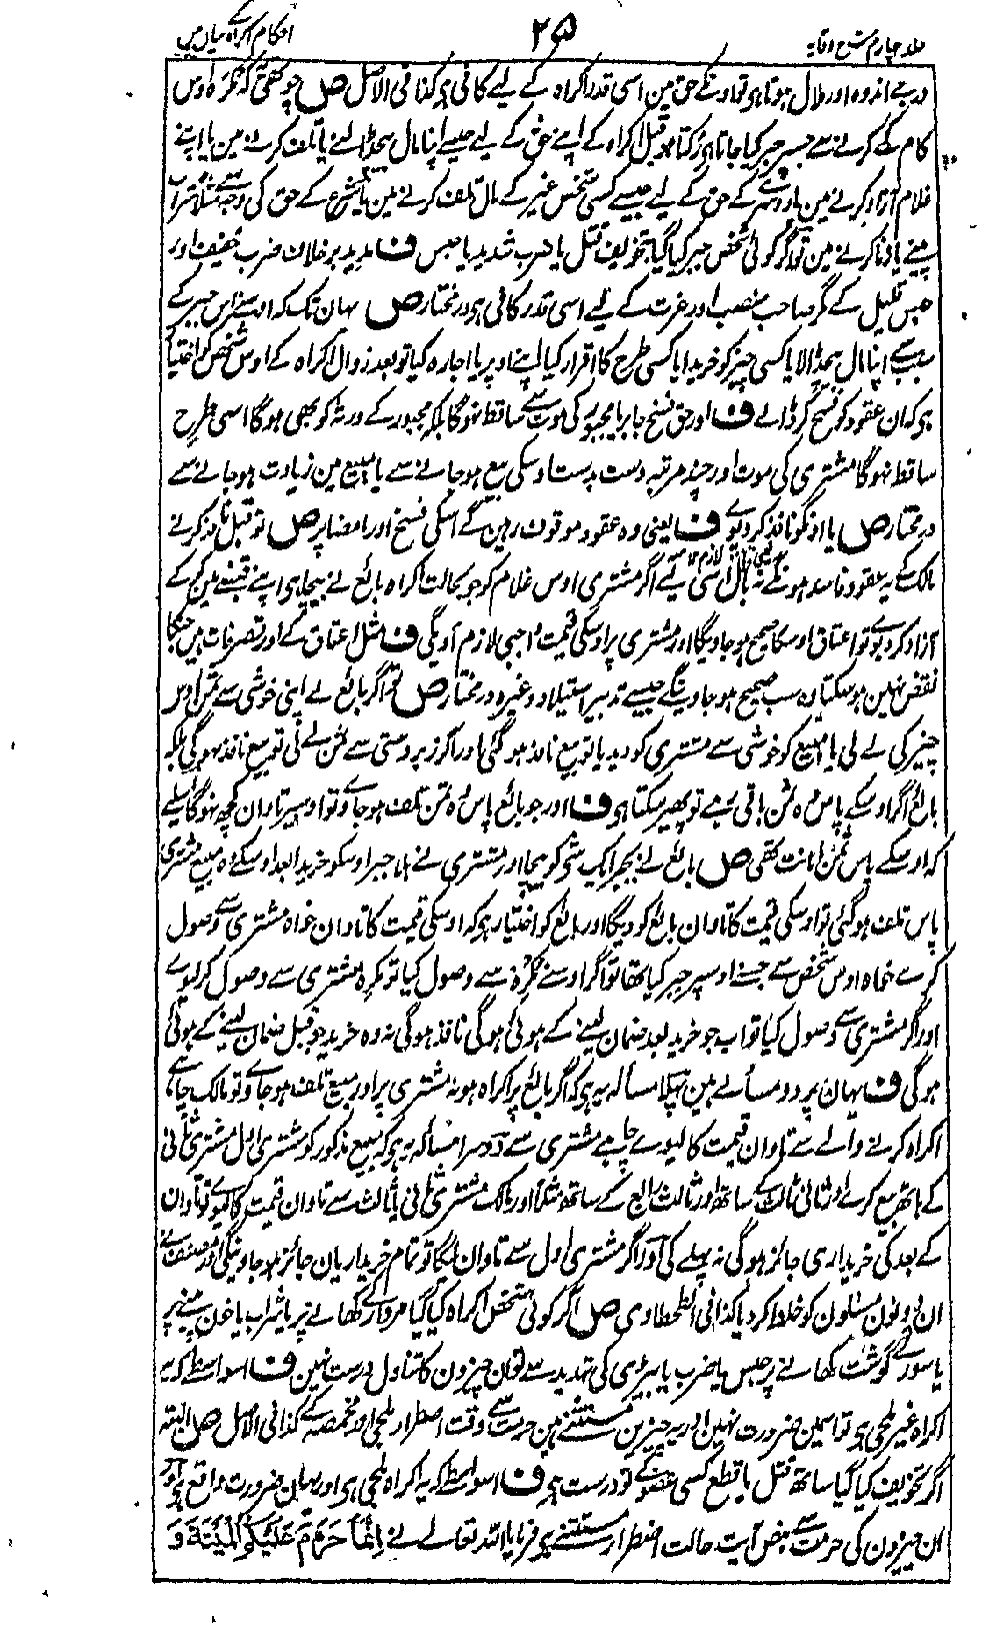 جلد چہارم شرح وقایہ ۲۵ احکام اکراہ کے بیان میں
درجے اندوہ اور ملال ہوتا ہو تو اونکے حق مین اسی قدر اکراہ کے لیے کافی ہی کذا فی الاصل ص چوتھی کہ مکرہ اوس
کام کے کرنے سے جسپر جبر کیا جاتا ہی رکتا ہو قبل اکراہ کے اپنے حق کے لیے جیسے اپنا مال بیچ ڈالنے یا تلف کرنے مین یا اپنے
غلام آزاد کرنے مین یا دوسرے کے حق کے لیے جیسے کسی شخص غیر کے مال تلف کرنے مین یا شرع کے حق کی وجہ سے مثلا شراب
پینے یا زنا کرنے مین تو اگر کوئی شخص جبر کیا گیا بتخویف قتل یا ضرب شدید یا حبس ف مدید برخلاف ضرب خفیف اور
حبس قلیل کے مگر صاحب منصب اور عزت کے لیے اسی قدر کافی ہی درمختار ص یہان تک کہ اوسنے اس جبر کے
سبب سے اپنا مال بیچ ڈالا یا کسی چیز کو خریدا یا کسی طرح کا اقرار کیا اپنے اوپر یا اجارہ کیا تو بعد زوال اکراہ کے اوس شخص کو اختیار
ہی کہ ان عقود کو فسخ کر ڈالے ف اور حق فسخ جابر یا مجبور کی موت سے ساقط نہوگا بلکہ مجبور کے ورثہ کو بھی ہوگا اسی طرح
ساقط نہوگا مشتری کی موت اور چند مرتبہ دست بدست اوسکی بیع ہو جانے سے یا مبیع مین زیادت ہو جانے سے
درمختار ص یا اونکو نافذ کر دیوے ف یعنی وہ عقود موقوف رہین گے اسکی فسخ اور امضا پر ص تو قبل نافذ کرنے
مالک کے یہ عقود فاسد ہونگے نہ باطل اسی لیے اگر مشتری اوس غلام کو جو بحالت اکراہ بائع نے بیچا ہی اپنے قبضے مین کر کے
آزاد کر دیوے تو اعتاق اوسکا صحیح ہو جاویگا اور مشتری پر اوسکی قیمت واجبی لازم آویگی ف مثل اعتاق کے اور تصرفات ہین جنکا
نقض نہین ہو سکتا وہ سب صحیح ہو جاوینگے جیسے تدبیر استیلاد وغیرہ درمختار ص تو اگر بائع نے اپنی خوشی سے ثمن اوس
چیز کی لے لی یا مبیع کو خوشی سے مشتری کو دیدیا تو بیع نافذ ہو گئی اور اگر زبردستی سے ثمن لے لی تو بیع نافذ نہوگی بلکہ
بائع اگر اوسکے پاس وہ ثمن باقی ہے تو پھیر سکتا ہی ف اور جو بائع پاس وہ ثمن تلف ہو جاوے تو اوسپر تاوان کچھ نہوگا اسلیے
کہ اوسکے پاس ثمن امانت تھی ص بائع نے بجبر ایک شی کو بیچا اور مشتری نے بلا جبر اوسکو خریدا بعد اوسکے وہ مبیع مشتری
پاس تلف ہو گئی تو اوسکی قیمت کا تاوان بائع کو دیگا اور بائع کو اختیار ہی کہ اوسکی قیمت کا تاوان خواہ مشتری سے وصول
کرے خواہ اوس شخص سے جسنے اوسپر جبر کیا تھا تو اگر اوسنے مکرہ سے وصول کیا تو مکرہ مشتری سے وصول کر لیوے
اور اگر مشتری سے وصول کیا تو اب جو خرید بعد ضمان لینے کے ہوئی ہوگی نافذ ہوگی نہ وہ خرید جو قبل ضمان لینے کے ہوئی
ہوگی ف یہان پر دو مسألے ہین پہلا مسألہ یہ ہی کہ اگر بائع پر اکراہ ہو نہ مشتری پر اور مبیع تلف ہو جاوے تو مالک چاہے
اکراہ کرنے والے سے تاوان قیمت کا لیوے چاہے مشتری سے دوسرا مسألہ یہ ہی کہ مبیع مذکور کو مشتری اول مشتری ثانی
کے ہاتھ بیع کرے اور ثانی ثالث کے ساتھ اور ثالث رابع کے ساتھ مثلا اور مالک مشتری ثانی یا ثالث سے تاوان قیمت کا لیوے تو تاوان
کے بعد کی خریداری جائز ہوگی نہ پہلے کی اور اگر مشتری اول سے تاوان لیگا تو تمام خریداریان جائز ہو جاوینگی اور مصنف نے
ان دونون مسئلون کو خلط کر دیا کذا فی الطحطاوی ص اگر کوئی شخص اکراہ کیا گیا مردار کے کھانے پر یا شراب یا خون پینے پر
یا سور کے گوشت کھانے پر حبس یا ضرب یا بیڑی کی تہدید سے تو ان چیزون کا تناول درست نہین ف اسواسطے کہ یہ
اکراہ غیر ملجی ہی تو اسمین ضرورت نہین اور یہ چیزین مستثنے ہین حرمت سے وقت اضطرار ملجی اور مخمصہ کے کذا فی الاصل ص البتہ
اگر تخویف کیا گیا ساتھ قتل یا قطع کسی عضو کے تو درست ہی ف اسواسطے کہ یہ اکراہ ملجی ہی اور یہان ضرورت واقع ہی اور
ان چیزون کی حرمت سے بنص آیت حالت اضطرار مستثنے ہی فرمایا اللہ تعالے نے اِنَّمَا حَرَّمَ عَلَيْكُمُ الْمَيْتَةَ وَ